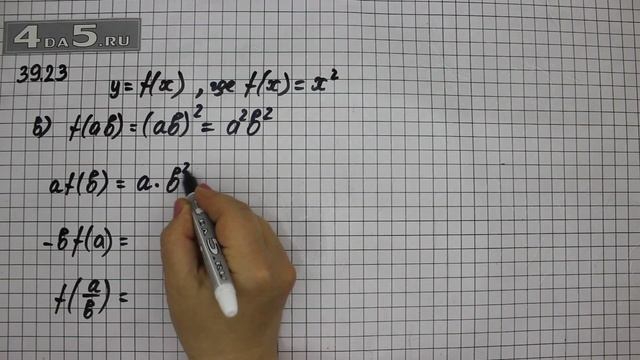 4DA5.RU
39.23
y = f(x), где f(x) = x²
в) f(ab) = (ab)² = a²b²
af(b) = a · b²
-bf(a) =
f(a/b) =